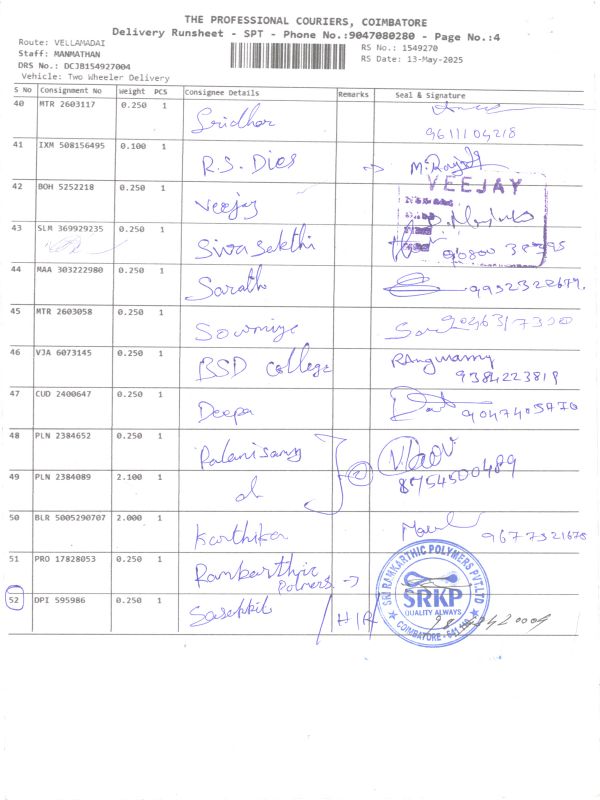 THE PROFESSIONAL COURIERS, COIMBATORE
Delivery Runsheet - SPT - Phone No.:9047080280 - Page No.:4
Route: VELLAMADAI
RS No.: 1549270
Staff: MANMATHAN
RS Date: 13-May-2025
DRS No.: DCJB154927004
Vehicle: Two Wheeler Delivery
S No Consignment No Weight PCS Consignee Details Remarks Seal & Signature
40 MTR 2603117 0.250 1 Sridhar
9611104218
41 IXM 508156495 0.100 1 R.S. Dies
42 BOH 5252218 0.250 1 Veejay VEEJAY
43 SLM 369929235 0.250 1 Siva Sakthi
44 MAA 303222980 0.250 1 Sarath
45 MTR 2603058 0.250 1 Sowmiya
46 VJA 6073145 0.250 1 BSD College
9384223819
47 CUD 2400647 0.250 1 Deepa
48 PLN 2384652 0.250 1 Palanisamy
8754500489
49 PLN 2384089 2.100 1
50 BLR 5005290707 2.000 1 Karthika
51 PRO 17828053 0.250 1 Ramkarthic
Polmers
SRI RAMKARTHIC POLYMERS PVT.LTD
SRKP
QUALITY ALWAYS
COIMBATORE
52 DPI 595986 0.250 1